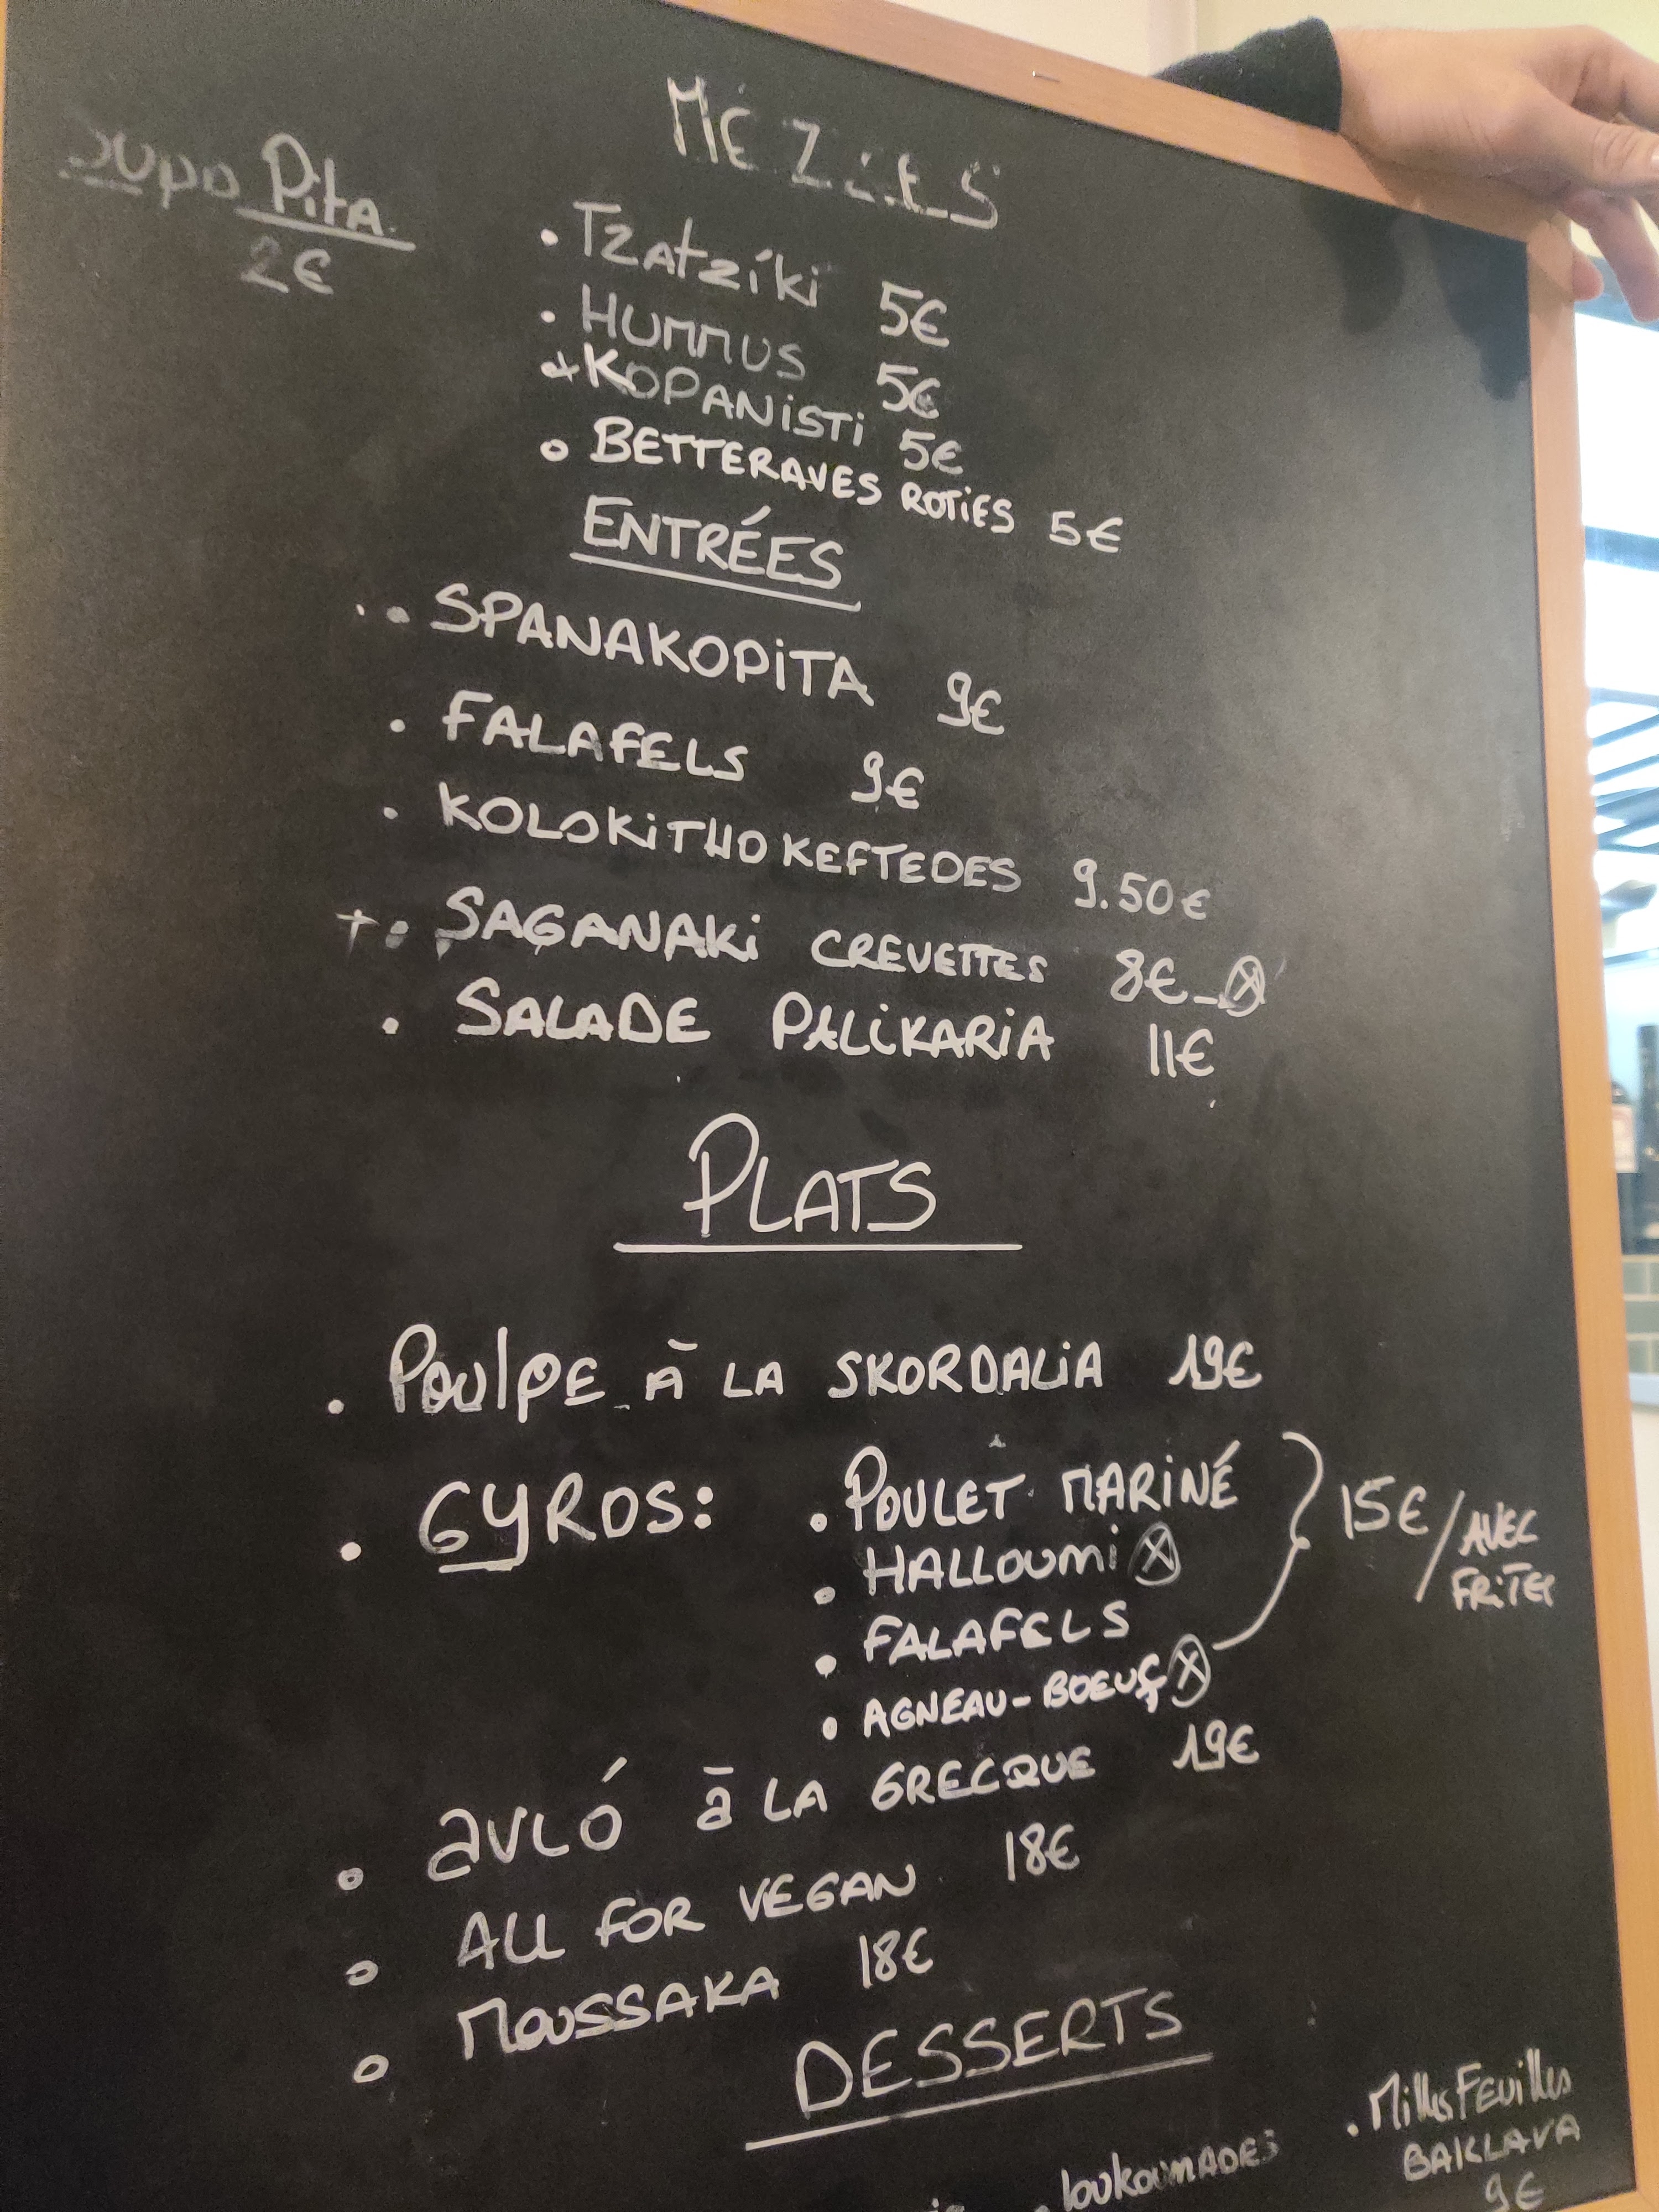 MÉZÉES
supp Pita
2€
• Tzatziki 5€
• HUMMUS 5€
KOPANiSTi 5€
• BETTERAVES ROTiES 5€
ENTRÉES
• SPANAKOPiTA 9€
• FALAFELS 9€
• KOLOKiTHOKEFTEDES 9.50€
+ • SAGANAKi CREVETTES 8€ - ⓧ
• SALADE PALiKARiA 11€
PLATS
• Poulpe à LA SKORDALiA 19€
• GYROS: • POULET MARiNÉ
• HALLOUMi ⓧ
15€ / AVEC
FRiTES
• FALAFELS
• AGNEAU-BOEUF ⓧ
• avló à LA GRECQUE 19€
• ALL FOR VEGAN 18€
• MOUSSAKA 18€
DESSERTS
• MillesFeuilles
BAKLAVA
9€
• loukoumADES